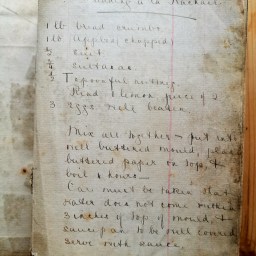 Pudding a la Rachael
1 lb bread crumbs
1 lb apples, chopped
suet
sultanas
1/2 Teaspoonful nutmeg
Rind 1 lemon, juice of 2
3 eggs well beaten
Mix all together — put into
well buttered mould, place
buttered paper on top, &
boil 4 hours —
Care must be taken that
water does not come within
3 inches of top of mould, &
saucepan to be well covered
serve with sauce.